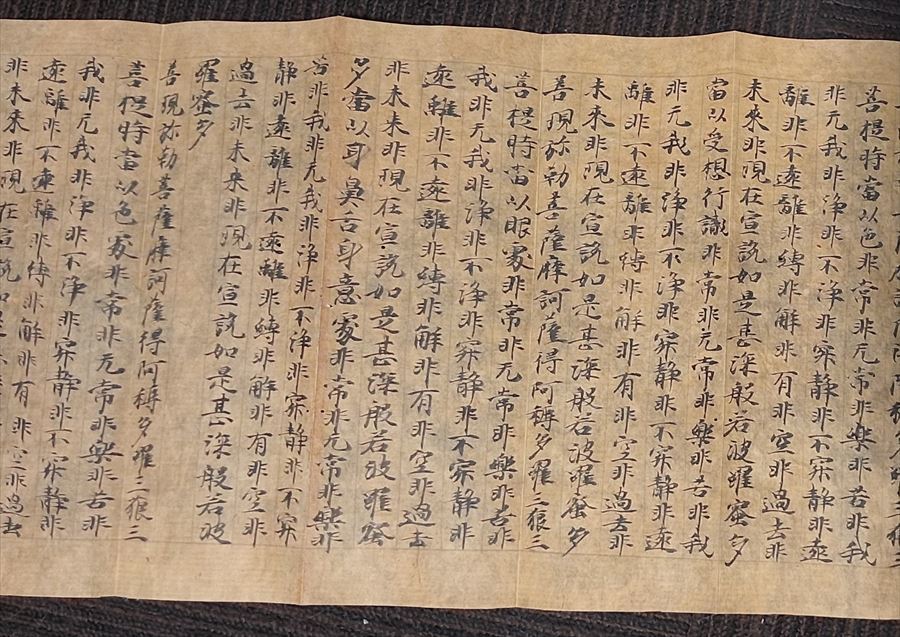 菩提時當以色非常非无常非樂非苦非我
非无我非淨非不淨非寂静非不寂静非遠
離非不遠離非縛非解非有非空非過去非
未來非現在宣說如是甚深般若波羅蜜多
當以受想行識非常非无常非樂非苦非我
非无我非淨非不淨非寂静非不寂静非遠
離非不遠離非縛非解非有非空非過去非
未來非現在宣說如是甚深般若波羅蜜多
善現弥勒菩薩摩訶薩得阿耨多羅三藐三
菩提時當以眼處非常非无常非樂非苦非
我非无我非淨非不淨非寂静非不寂静非
遠離非不遠離非縛非解非有非空非過去
非未來非現在宣說如是甚深般若波羅蜜
多當以耳鼻舌身意處非常非无常非樂非
苦非我非无我非淨非不淨非寂静非不寂
静非遠離非不遠離非縛非解非有非空非
過去非未來非現在宣說如是甚深般若波
羅蜜多
善現弥勒菩薩摩訶薩得阿耨多羅三藐三
菩提時當以色處非常非无常非樂非苦非
我非无我非淨非不淨非寂静非不寂静非
遠離非不遠離非縛非解非有非空非過去
非未來非現在宣說如是